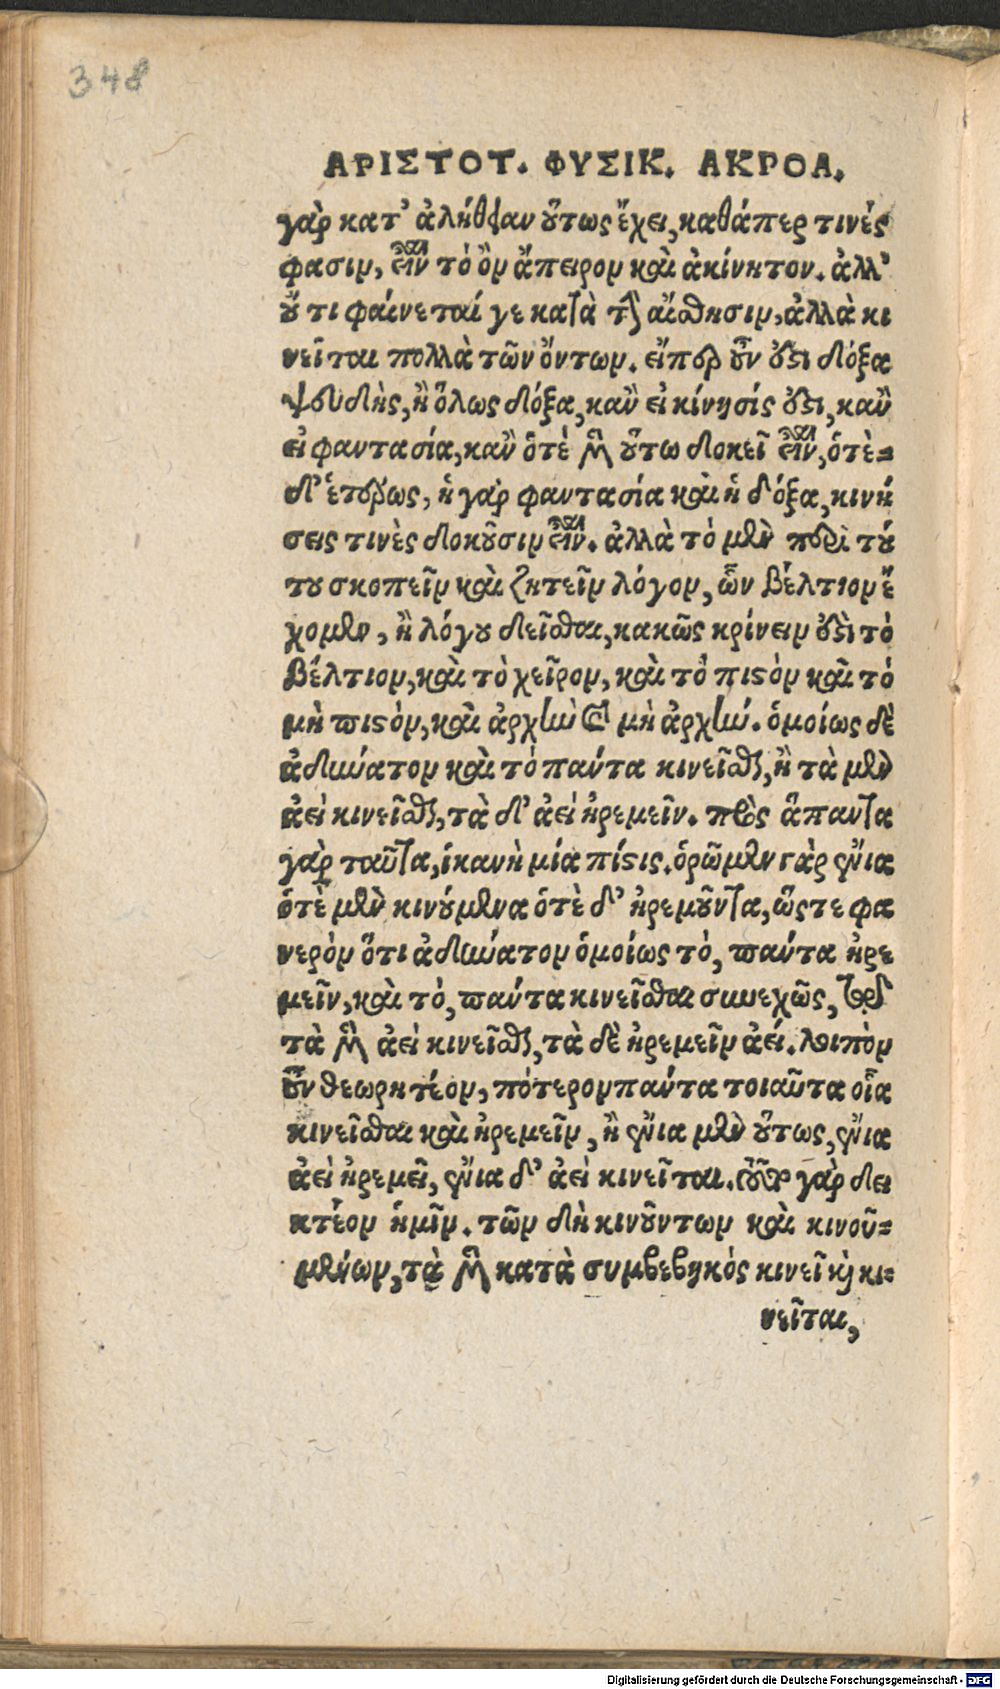 348
ΑΡΙΣΤΟΤ. ΦΥΣΙΚ. ΑΚΡΟΑ.
γὰρ κατ' ἀλήθειαν οὕτως ἔχει, καθάπερ τινές
φασιν, εἶναι τὸ ὂν ἄπειρον καὶ ἀκίνητον. ἀλλ'
οὔ τι φαίνεταί γε κατὰ τὴν αἴσθησιν, ἀλλὰ κι
νεῖται πολλὰ τῶν ὄντων. εἴπερ οὖν ἐστι δόξα
ψευδὴς, ἢ ὅλως δόξα, κἂν εἰ κίνησίς ἐστι, κἂν
εἰ φαντασία, κἂν ὁτὲ μὲν οὕτω δοκεῖ εἶναι, ὁτὲ=
δ' ἑτέρως, ἡ γὰρ φαντασία καὶ ἡ δόξα, κινή
σεις τινὲς δοκοῦσιν εἶναι. ἀλλὰ τὸ μὲν περὶ τού
του σκοπεῖν καὶ ζητεῖν λόγον, ὧν βέλτιον ἔ
χομεν, ἢ λόγου δεῖσθαι, κακῶς κρίνειν ἐστὶ τὸ
βέλτιον, καὶ τὸ χεῖρον, καὶ τὸ πιστὸν καὶ τὸ
μὴ πιστὸν, καὶ ἀρχὴν καὶ μὴ ἀρχήν. ὁμοίως δὲ
ἀδύνατον καὶ τὸ πάντα κινεῖσθαι, ἢ τὰ μὲν
ἀεὶ κινεῖσθαι, τὰ δ' ἀεὶ ἠρεμεῖν. πρὸς ἅπαντα
γὰρ ταῦτα, ἱκανὴ μία πίστις. ὁρῶμεν γὰρ ἔνια
ὁτὲ μὲν κινούμενα ὁτὲ δ' ἠρεμοῦντα, ὥστε φα
νερὸν ὅτι ἀδύνατον ὁμοίως τὸ, πάντα ἠρε
μεῖν, καὶ τὸ, πάντα κινεῖσθαι συνεχῶς, τῷ
τὰ μὲν ἀεὶ κινεῖσθαι, τὰ δὲ ἠρεμεῖν ἀεί. λοιπὸν
οὖν θεωρητέον, πότερον πάντα τοιαῦτα οἷα
κινεῖσθαι καὶ ἠρεμεῖν, ἢ ἔνια μὲν οὕτως, ἔνια
ἀεὶ ἠρεμεῖ, ἔνια δ' ἀεὶ κινεῖται. τοῦτο γὰρ δει
κτέον ἡμῖν. τῶν δὴ κινούντων καὶ κινου=
μένων, τὰ μὲν κατὰ συμβεβηκός κινεῖ καὶ κι=
νεῖται,
Digitalisierung gefördert durch die Deutsche Forschungsgemeinschaft - DFG